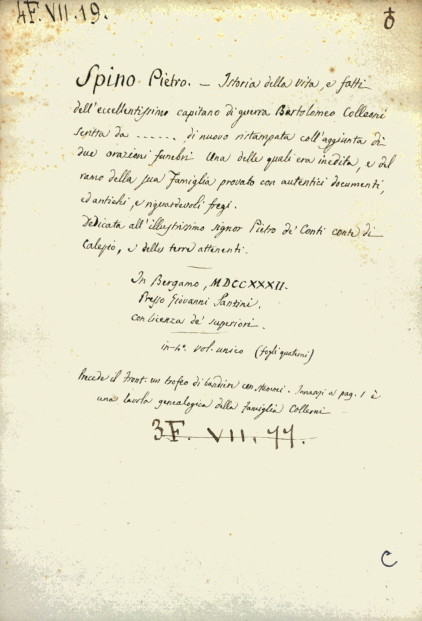 4F. VII. 19.
Spino Pietro. — Istoria della vita, e fatti
dell'eccellentissimo capitano di guerra Bartolomeo Colleoni
scritta da ...... di nuovo ristampata coll'aggiunta di
due orazioni funebri una delle quali era inedita, e del
ramo della sua Famiglia provato con autentici documenti,
ed antichi, e riguardevoli fregi.
Dedicata all'illustrissimo signor Pietro de' Conti conte di
Calepio, e delle terre attenenti.
In Bergamo, MDCCXXXII.
Presso Giovanni Santini.
con licenza de' superiori.
in-4°. vol. unico (fogli quaterni)
Precede il front. un trofeo di bandiere con stemmi. Innanzi a pag. 1 è
una tavola genealogica della famiglia Colleoni
3F. VII. 77.
C